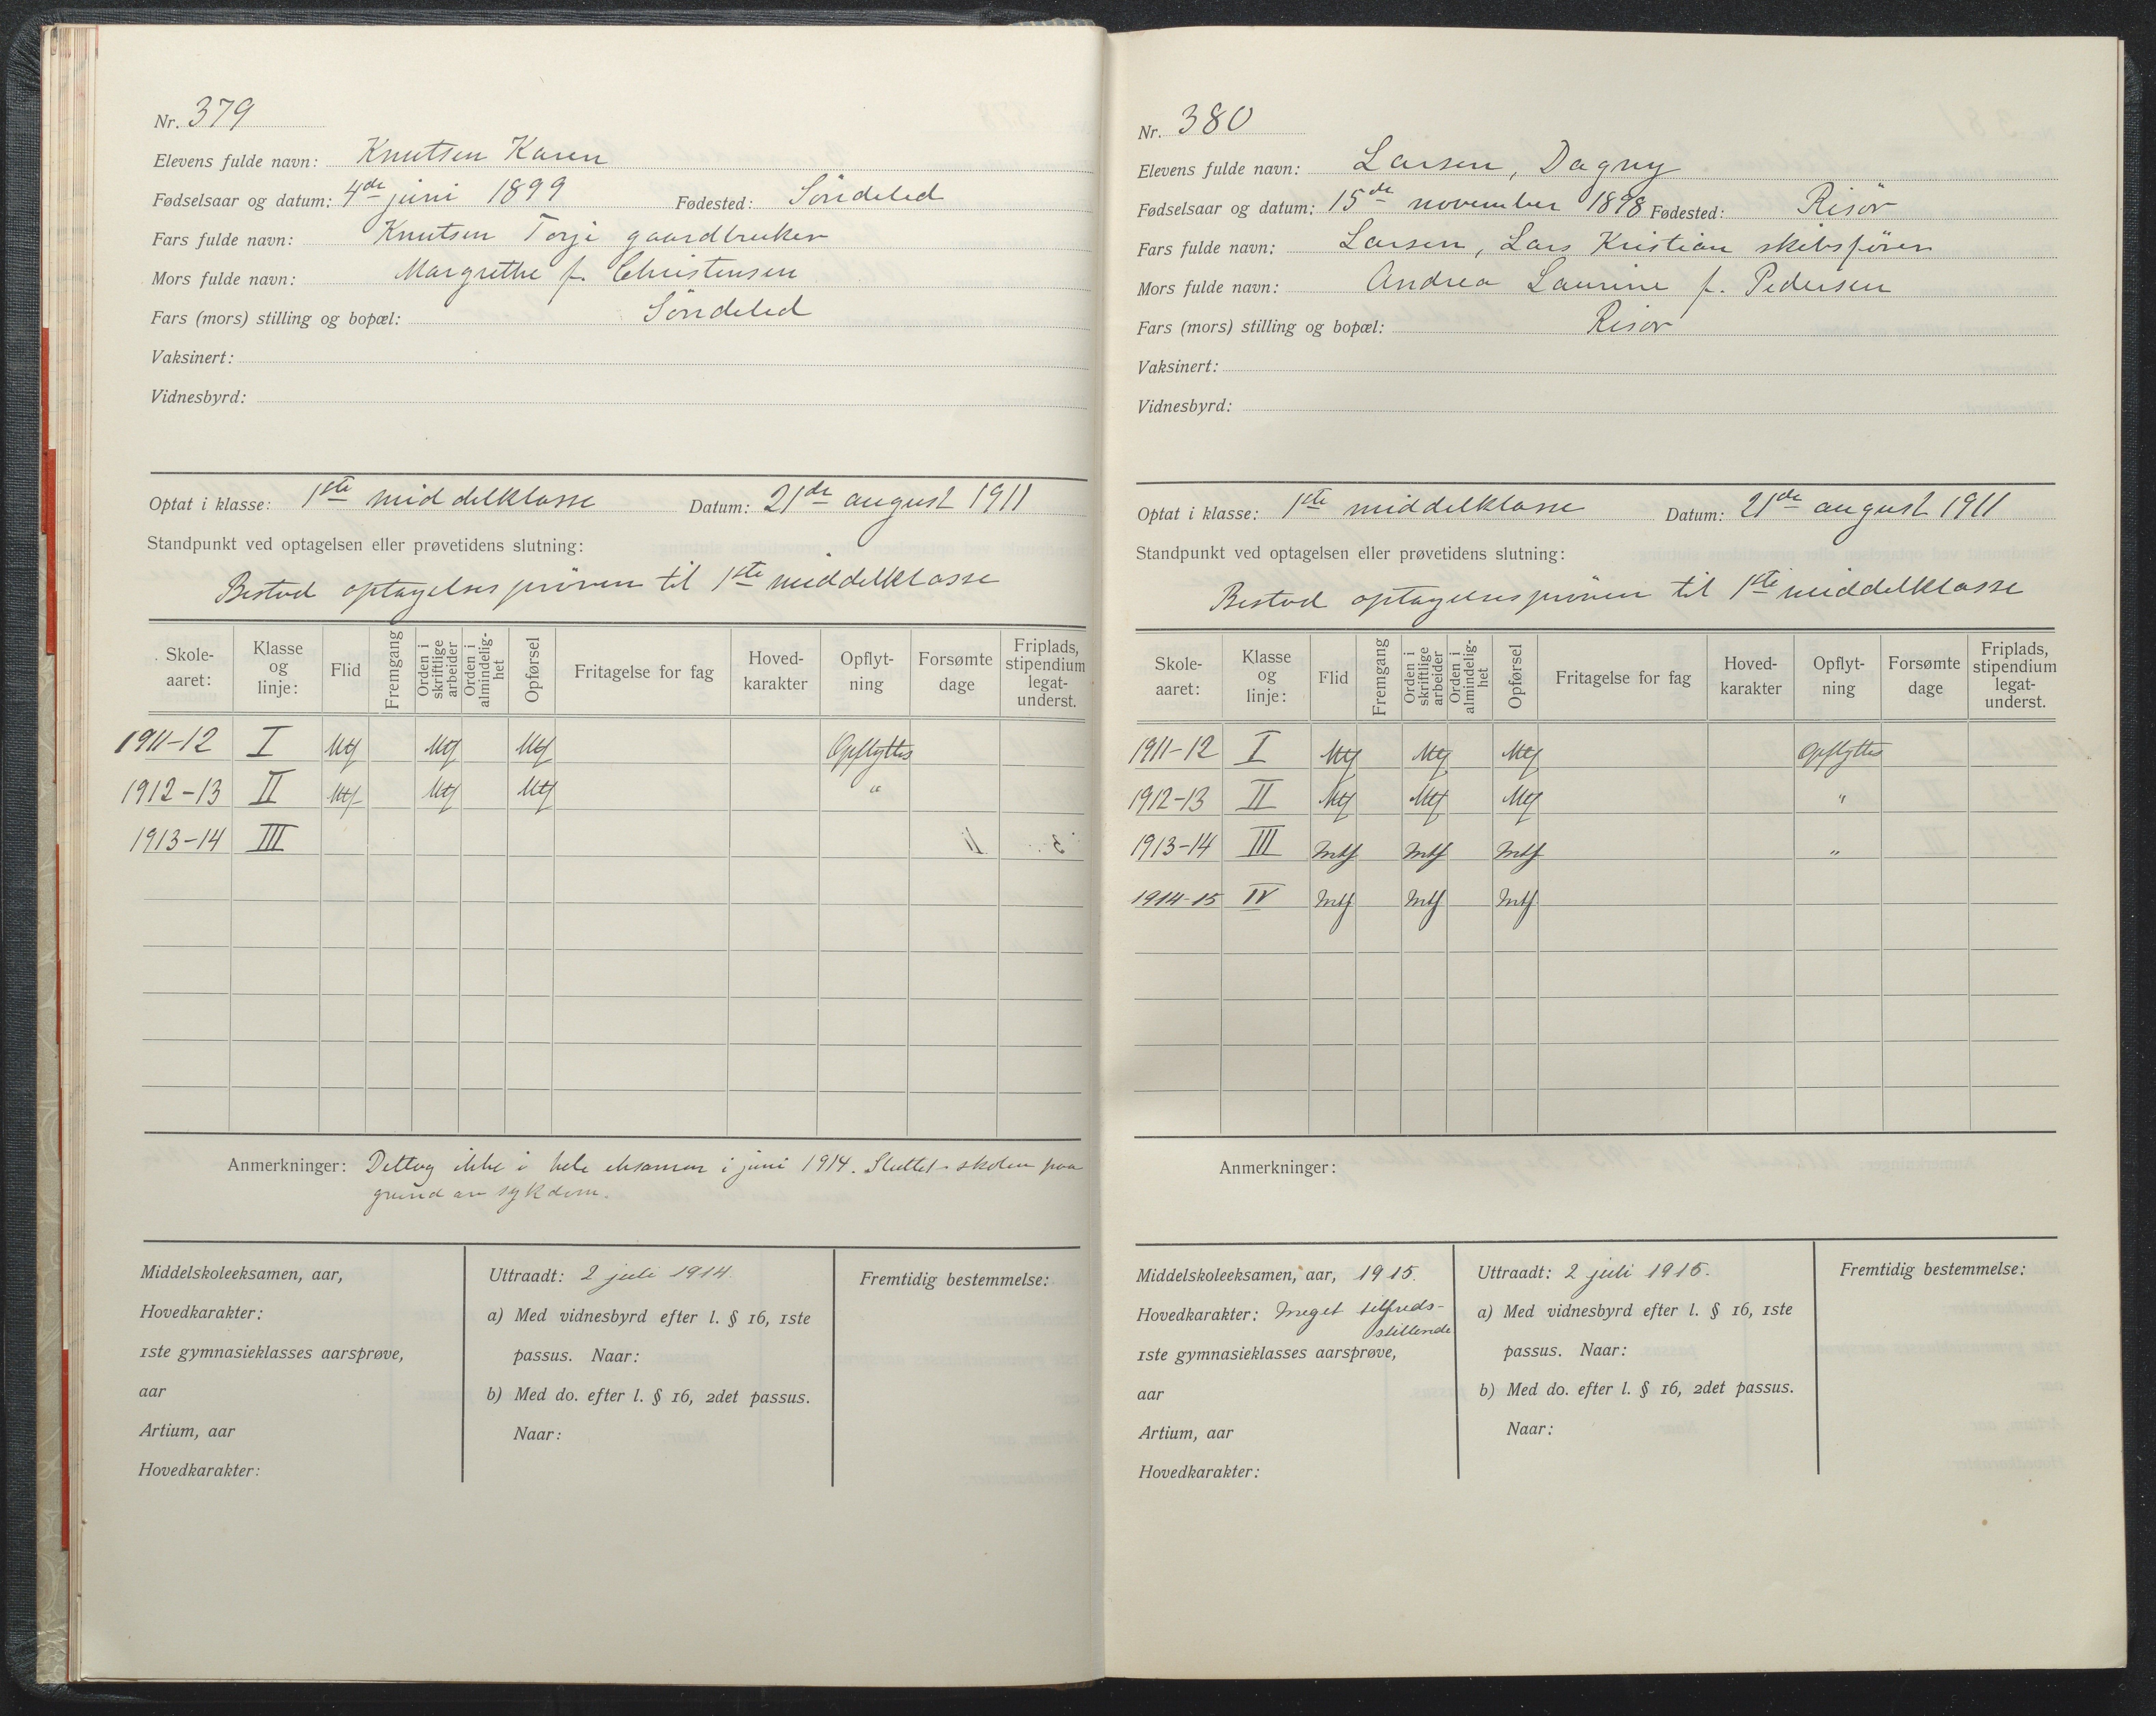 Nr. 379
Elevens fulde navn: Knutsen Karen
Fødselsaar og datum: 4de juni 1899 Fødested: Söndeled
Fars fulde navn: Knutsen Torje gaardbruker
Mors fulde navn: Margrethe f. Christensen
Fars (mors) stilling og bopæl: Söndeled
Vaksinert:
Vidnesbyrd:
Optat i klasse: 1ste middelklasse Datum: 21de august 1911
Standpunkt ved optagelsen eller prøvetidens slutning:
Bestod optagelsespröven til 1ste middelklasse
Skole-aaret: Klasse og linje: Flid Fremgang Orden i skriftlige arbeider Orden i almindelig-het Opførsel Fritagelse for fag Hoved-karakter Opflyt-ning Forsømte dage Friplads, stipendium legat-underst.
1911-12 I Mtf Mtf Mtf Opflyttes
1912-13 II Mtf Mtf Mtf "
1913-14 III
Anmerkninger: Deltog ikke i hele eksamen i juni 1914. Sluttet skolen paa
grund av sykdom.
Middelskoleeksamen, aar,
Hovedkarakter:
1ste gymnasieklasses aarsprøve,
aar
Artium, aar
Hovedkarakter:
Uttraadt: 2 juli 1914.
a) Med vidnesbyrd efter l. § 16, 1ste
passus. Naar:
b) Med do. efter l. § 16, 2det passus.
Naar:
Fremtidig bestemmelse:
Nr. 380
Elevens fulde navn: Larsen, Dagny
Fødselsaar og datum: 15de november 1898 Fødested: Risör
Fars fulde navn: Larsen, Lars Kristian skibsförer
Mors fulde navn: Andrea Laurine f. Pedersen
Fars (mors) stilling og bopæl: Risör
Vaksinert:
Vidnesbyrd:
Optat i klasse: 1ste middelklasse Datum: 21de august 1911
Standpunkt ved optagelsen eller prøvetidens slutning:
Bestod optagelsespröven til 1ste middelklasse
Skole-aaret: Klasse og linje: Flid Fremgang Orden i skriftlige arbeider Orden i almindelig-het Opførsel Fritagelse for fag Hoved-karakter Opflyt-ning Forsømte dage Friplads, stipendium legat-underst.
1911-12 I Mtf Mtf Mtf Opflyttes
1912-13 II Mtf Mtf Mtf "
1913-14 III Mtf Mtf Mtf "
1914-15 IV Mtf Mtf Mtf
Anmerkninger:
Middelskoleeksamen, aar, 1915.
Hovedkarakter: Meget tilfreds-
stillende
1ste gymnasieklasses aarsprøve,
aar
Artium, aar
Hovedkarakter:
Uttraadt: 2 juli 1915.
a) Med vidnesbyrd efter l. § 16, 1ste
passus. Naar:
b) Med do. efter l. § 16, 2det passus.
Naar:
Fremtidig bestemmelse: